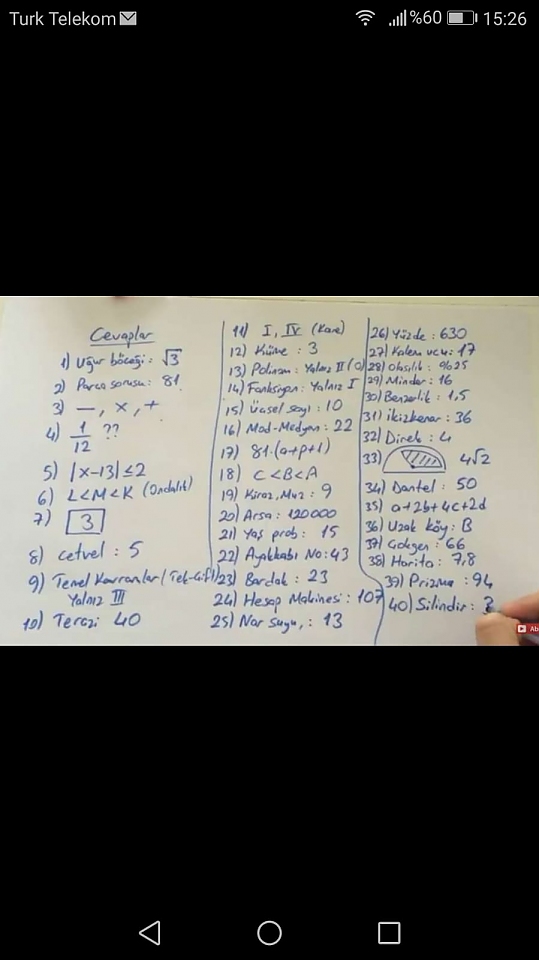 Turk Telekom
%60
15:26
Cevaplar
1) Uğur böceği : √3
2) Parça sorusu : 81
3) —, x, +
4) 1/12 ??
5) |x-13| ≤ 2
6) L<M<K (Ondalık)
7) 3
8) cetvel : 5
9) Temel Kavramlar (Tek-Çift)
Yalnız III
10) Terazi 40
11) I, IV (Kare)
12) Küme : 3
13) Polinom : Yalnız II
14) Fonksiyon : Yalnız I
15) Üssel sayı : 10
16) Mod-Medyan : 22
17) 81.(a+p+1)
18) C<B<A
19) Kiraz, Muz : 9
20) Arsa : 120000
21) Yaş prob : 15
22) Ayakkabı No : 43
23) Bardak : 23
24) Hesap Makinesi : 107
25) Nar suyu, : 13
26) Yüzde : 630
27) Kalem ucu : 17
28) Olasılık : %25
29) Minder : 16
30) Benzerlik : 1,5
31) ikizkenar : 36
32) Direk : 4
33) 4√2
34) Dantel : 50
35) a+2b+4c+2d
36) Uzak köy : B
37) Çokgen : 66
38) Harita : 7,8
39) Prizma : 94
40) Silindir :
Ab